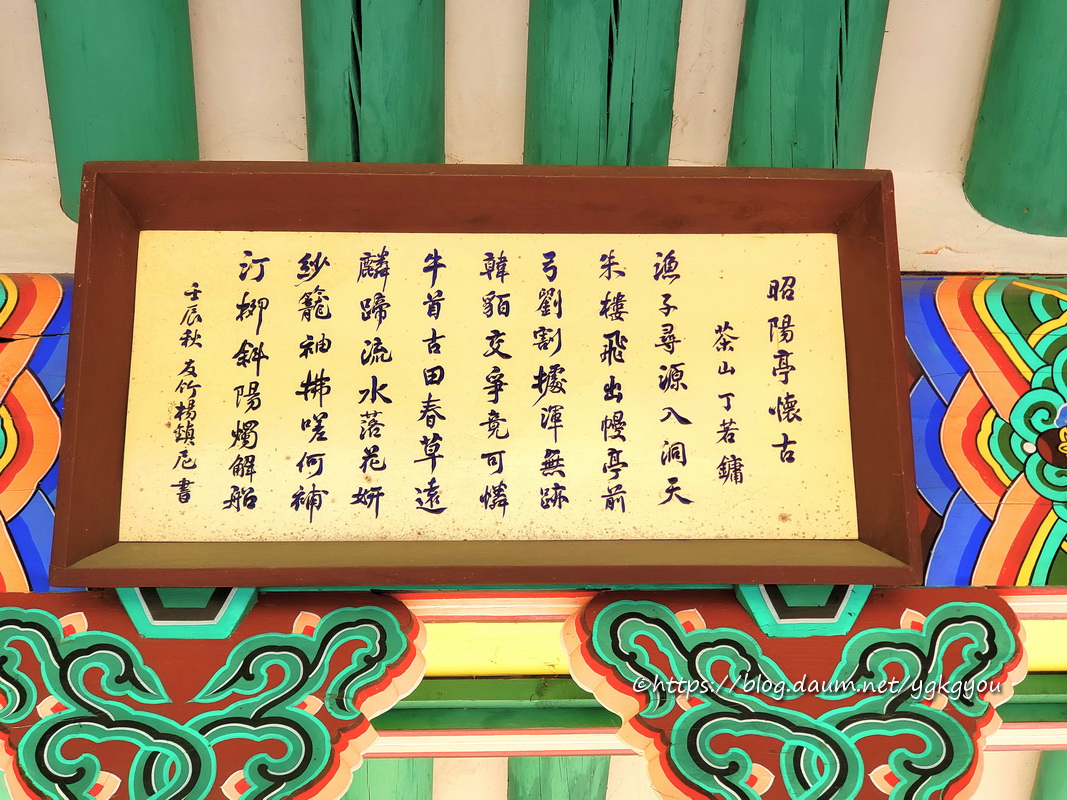 昭陽亭懷古
茶山 丁若鏞
漁子尋源入洞天
朱樓飛出幔亭前
弓劉割據渾無跡
韓貊交爭竟可憐
牛首古田春草遠
麟蹄流水落花姸
紗籠袖拂嗟何補
汀柳斜陽燭解船
壬辰秋 友竹楊鎭尼 書
©https://blog.daum.net/ygkgyou